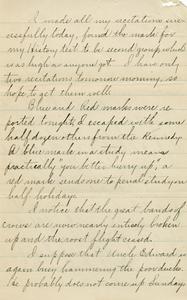 I made all my recitations suc-
cessfully today, found the mark for
my History test to be second group, which
is as high as anyone got. I have only
two recitations tomorrow morning, so
hope to get them well.
Blue and Red marks were re-
ported tonight; I escaped with some
half dozen others from the Kennedy.
A "blue" mark in a study means
practically "you better hurry up," a
red mark sends one to penal study on
half holiday.
I notice that the great bands of
crows are now nearly entirely broken
up and the roost flight ceased.
I suppose that Uncle Edward is
again busy hammering the poor ducks.
He probably does not come up Sunday